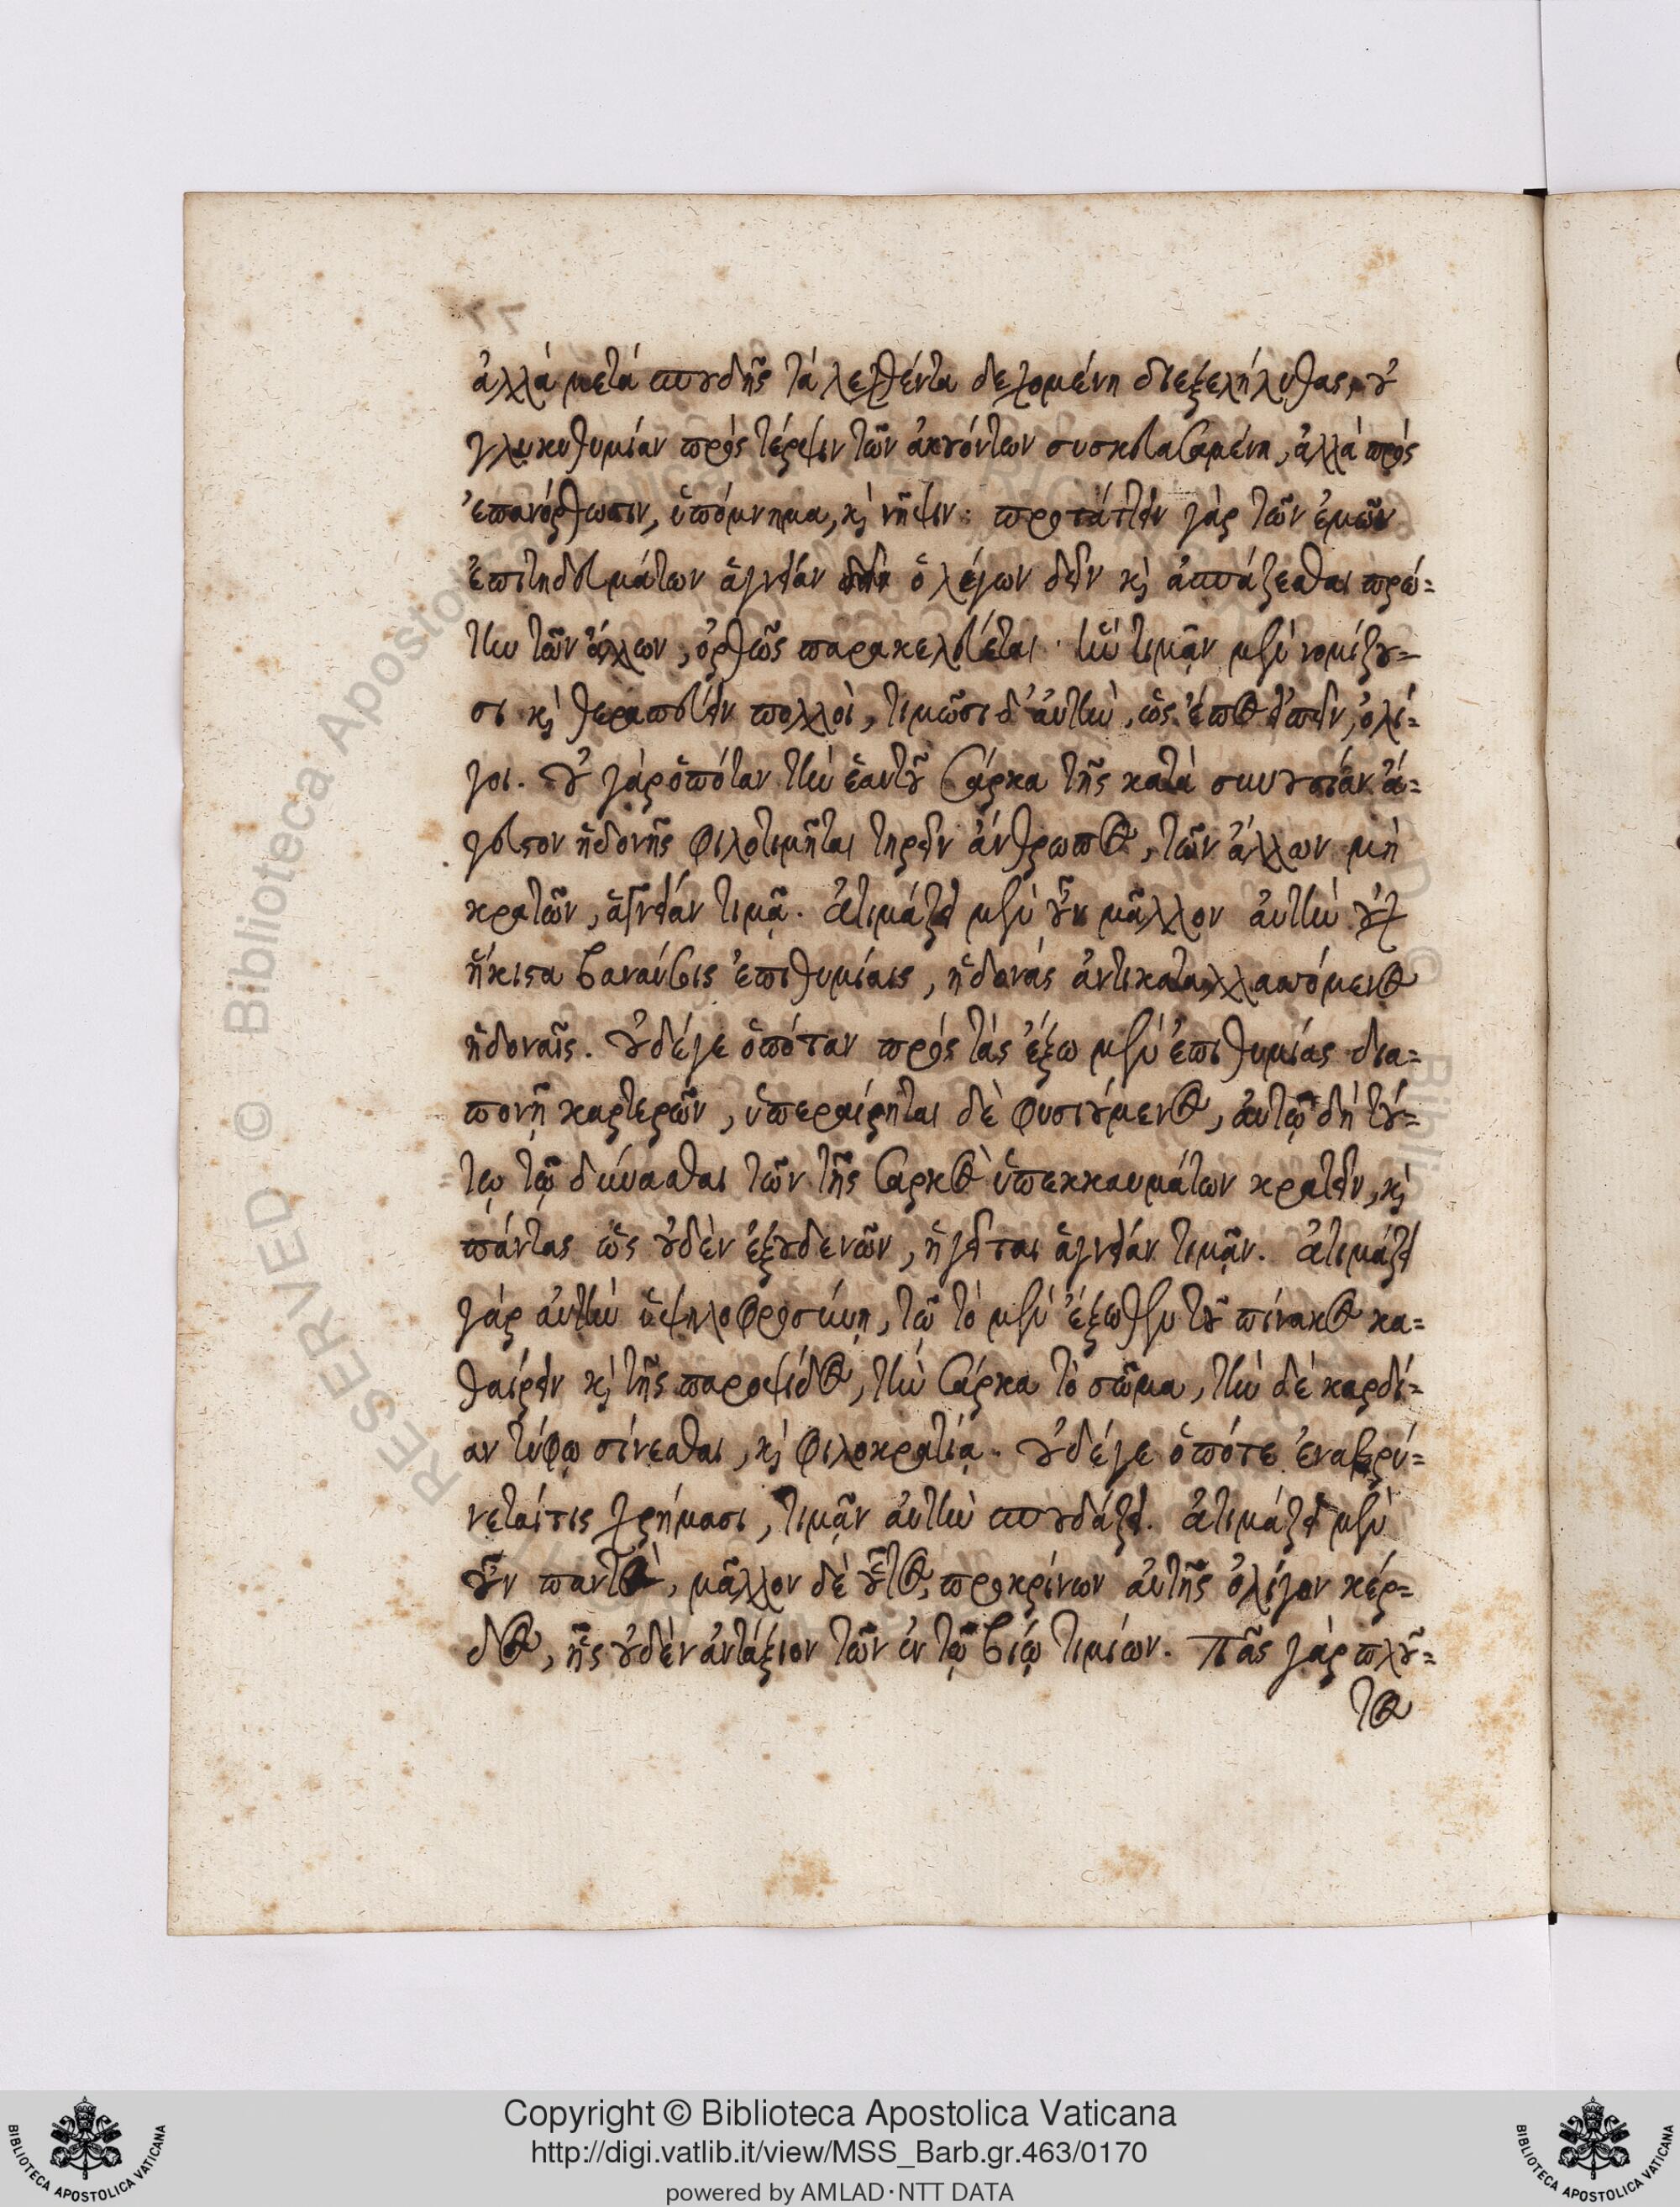 ἀλλὰ μετὰ σπουδῆς τὰ λεχθέντα δεχομένη διεξελήλυθας, οὐ
γλυκυθυμίαν πρὸς τέρψιν τῶν ἀκουόντων συσκευασαμένη, ἀλλὰ πρὸς
ἐπανόρθωσιν, ὑπόμνημα, καὶ νῆψιν: προστάττειν γὰρ τῶν ἐμῶν
ἐπιτηδευμάτων ἁγνείαν ὁ λέγων δεῖν καὶ ἀσπάζεσθαι πρώ=
την τῶν ἄλλων, ὀρθῶς παρακελεύεται. ἣν τιμᾷν μὲν νομίζου=
σι καὶ θεραπεύειν πολλοὶ, τιμῶσι δ' αὐτὴν, ὡς ἔπος εἰπεῖν, ὀλί=
γοι. οὐ γὰρ ὁπόταν τὴν ἑαυτοῦ σάρκα τῆς κατὰ συνουσίαν ἄ=
γευστον ἡδονῆς φιλοτιμῆται τηρεῖν ἄνθρωπος, τῶν ἄλλων μὴ
κρατῶν, ἁγνείαν τιμᾷ. ἀτιμάζει μὲν οὖν μᾶλλον αὐτὴν οὐχ
ἥκιστα βαναύσοις ἐπιθυμίαις, ἡδονάς ἀντικαταλλαττόμενος
ἡδοναῖς. οὐδέγε ὁπόταν πρὸς τὰς ἔξω μὲν ἐπιθυμίας δια=
πονῇ καρτερῶν, ὑπεραίρηται δὲ φυσιούμενος, αὐτῷ δὴ τού=
τῳ τῷ δύνασθαι τῶν τῆς σαρκὸς ὑπεκκαυμάτων κρατεῖν, καὶ
πάντας ὡς οὐδὲν ἐξουδενῶν, ἡγεῖσθαι ἁγνείαν τιμᾷν. ἀτιμάζει
γὰρ αὐτὴν ὑψηλοφροσύνῃ, τῷ τὸ μὲν ἔξωθεν τοῦ πίνακος κα=
θαίρειν καὶ τῆς παροψίδος, τὴν σάρκα τὸ σῶμα, τὴν δὲ καρδί=
αν τύφῳ σίνεσθαι, καὶ φιλοκρατίᾳ. οὐδέγε ὁπότε ἐναβρύ=
νεταίτις χρήμασι, τιμᾷν αὐτὴν σπουδάζει. ἀτιμάζει μὲν
οὖν παντὸς, μᾶλλον δὲ οὗτος, προκρίνων αὐτῆς ὀλίγον κέρ=
δος, ἧς οὐδὲν ἀντάξιον τῶν ἐν τῷ βίῳ τιμίων. Πᾶς γὰρ πλοῦ=
τος
Copyright © Biblioteca Apostolica Vaticana
http://digi.vatlib.it/view/MSS_Barb.gr.463/0170
powered by AMLAD·NTT DATA
BIBLIOTECA APOSTOLICA VATICANA
BIBLIOTECA APOSTOLICA VATICANA
RESERVED © Biblioteca Apostolica